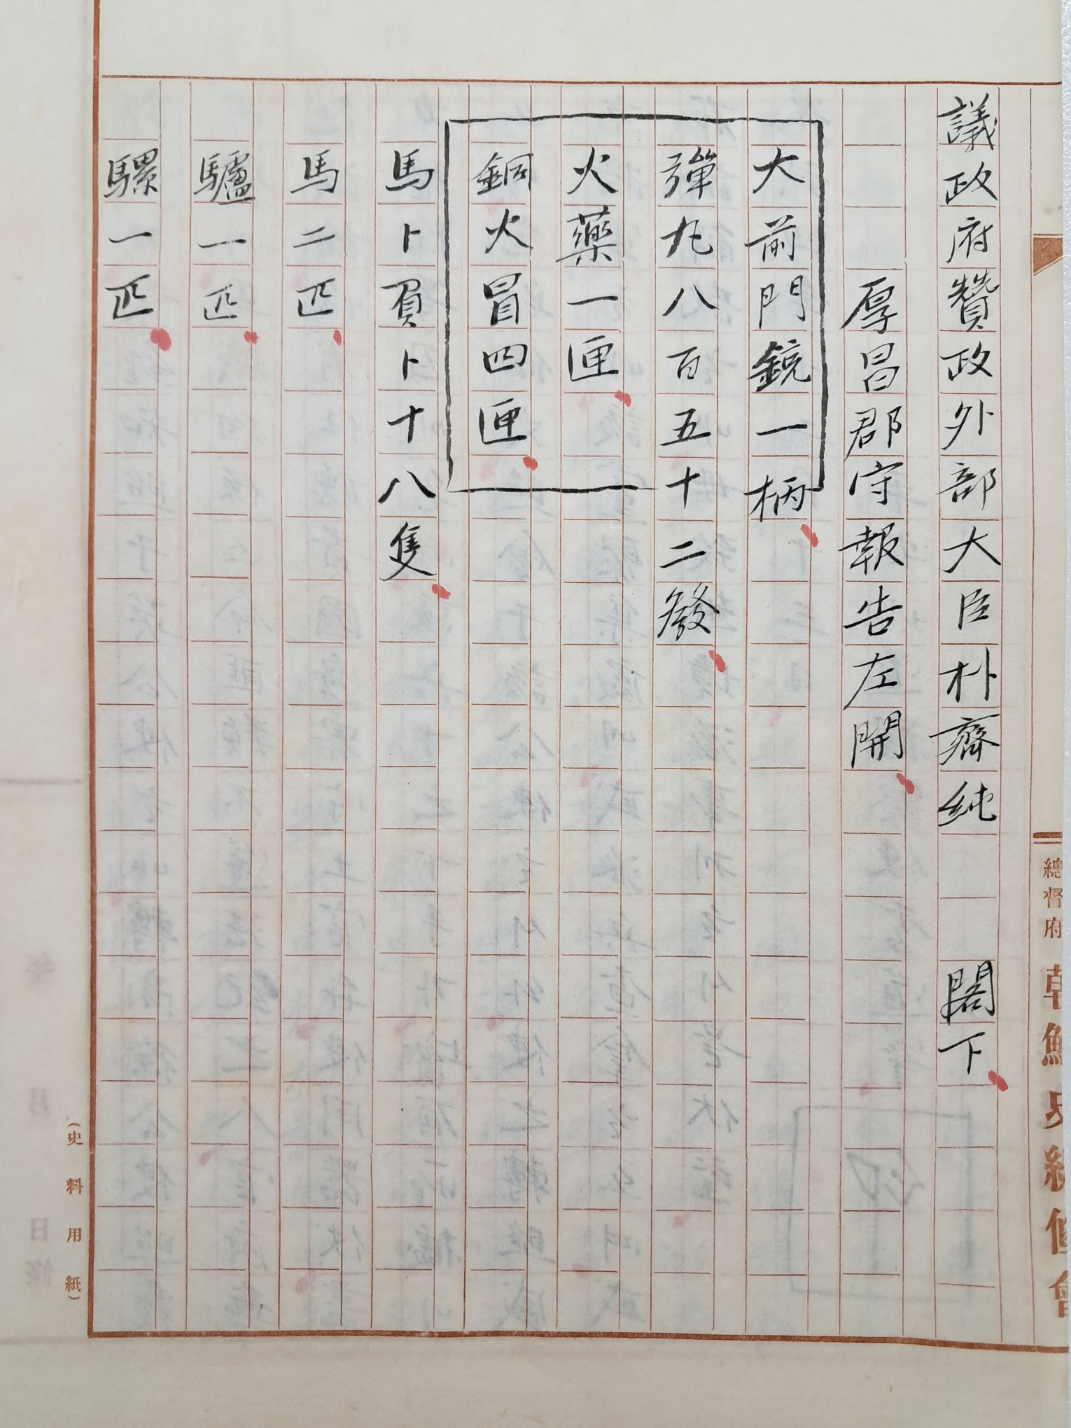 議政府贊政外部大臣朴齊純 閣下
厚昌郡守報告左開
大前門鏡一柄
彈丸八百五十二發
火藥一匣
銅火冒四匣
馬卜買卜十八隻
馬二匹
驢一匹
騾一匹
總督府 朝鮮史編修會
(史料用紙)
年 月 日條